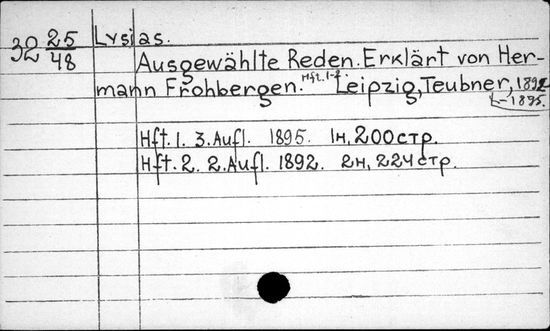 32 25/48 Lysias.
Ausgewählte Reden. Erklärt von Her-
mann Frohbergen. Hft. 1-2 Leipzig, Teubner, 1892
-1895.
Hft. 1. 3. Aufl. 1895. 1н, 200 стр.
Hft. 2. 2. Aufl. 1892. 2н, 224 стр.